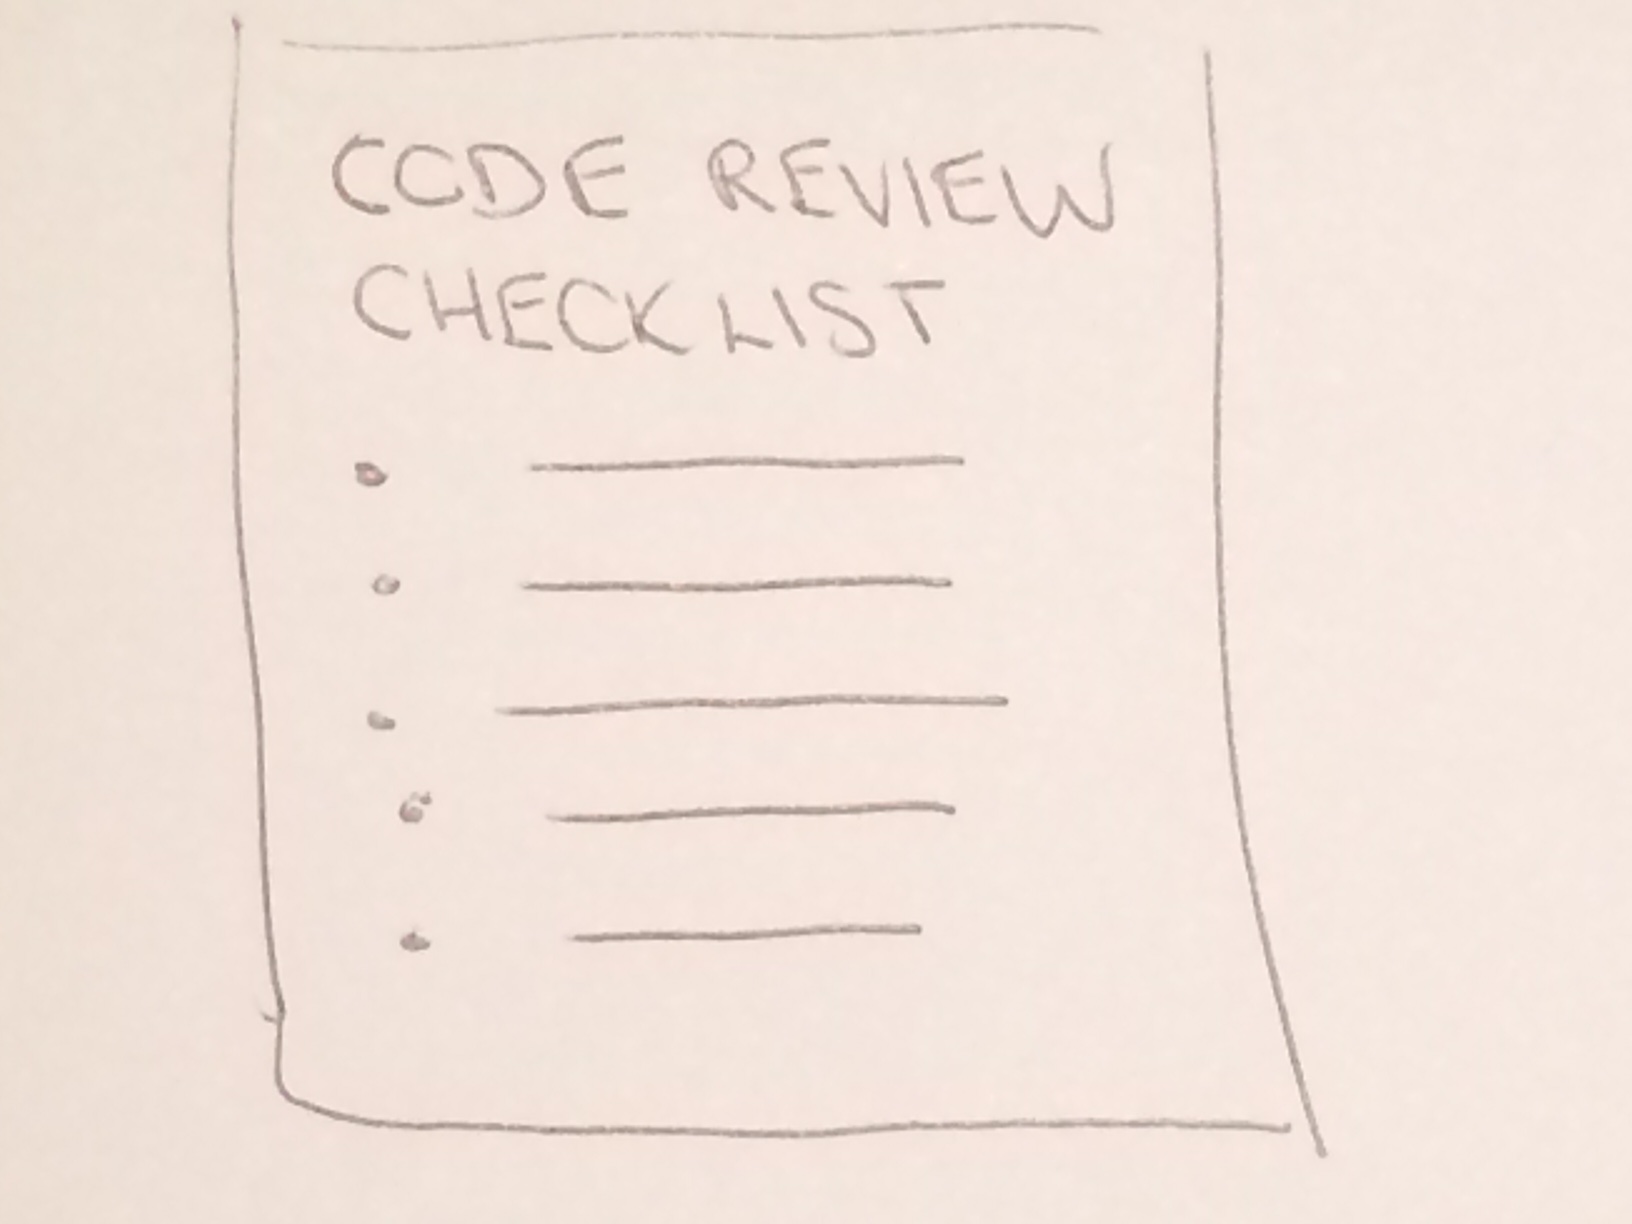 CODE REVIEW
CHECKLIST